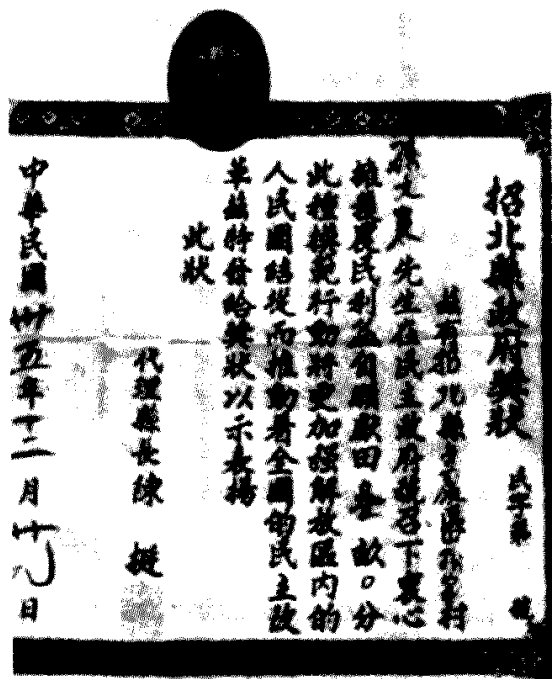 招北縣政府獎狀
民字第 號
茲有招北縣 區 村
孫文農先生在民主政府號召下衷心
擁護農民利益自願獻田 畝〇分
此種模範行動將更加强解放區内的
人民團結從而推動着全國的民主改
革茲特發給獎狀以示表揚
此狀
代理縣長陳 挺
中華民國卅五年十二月 日